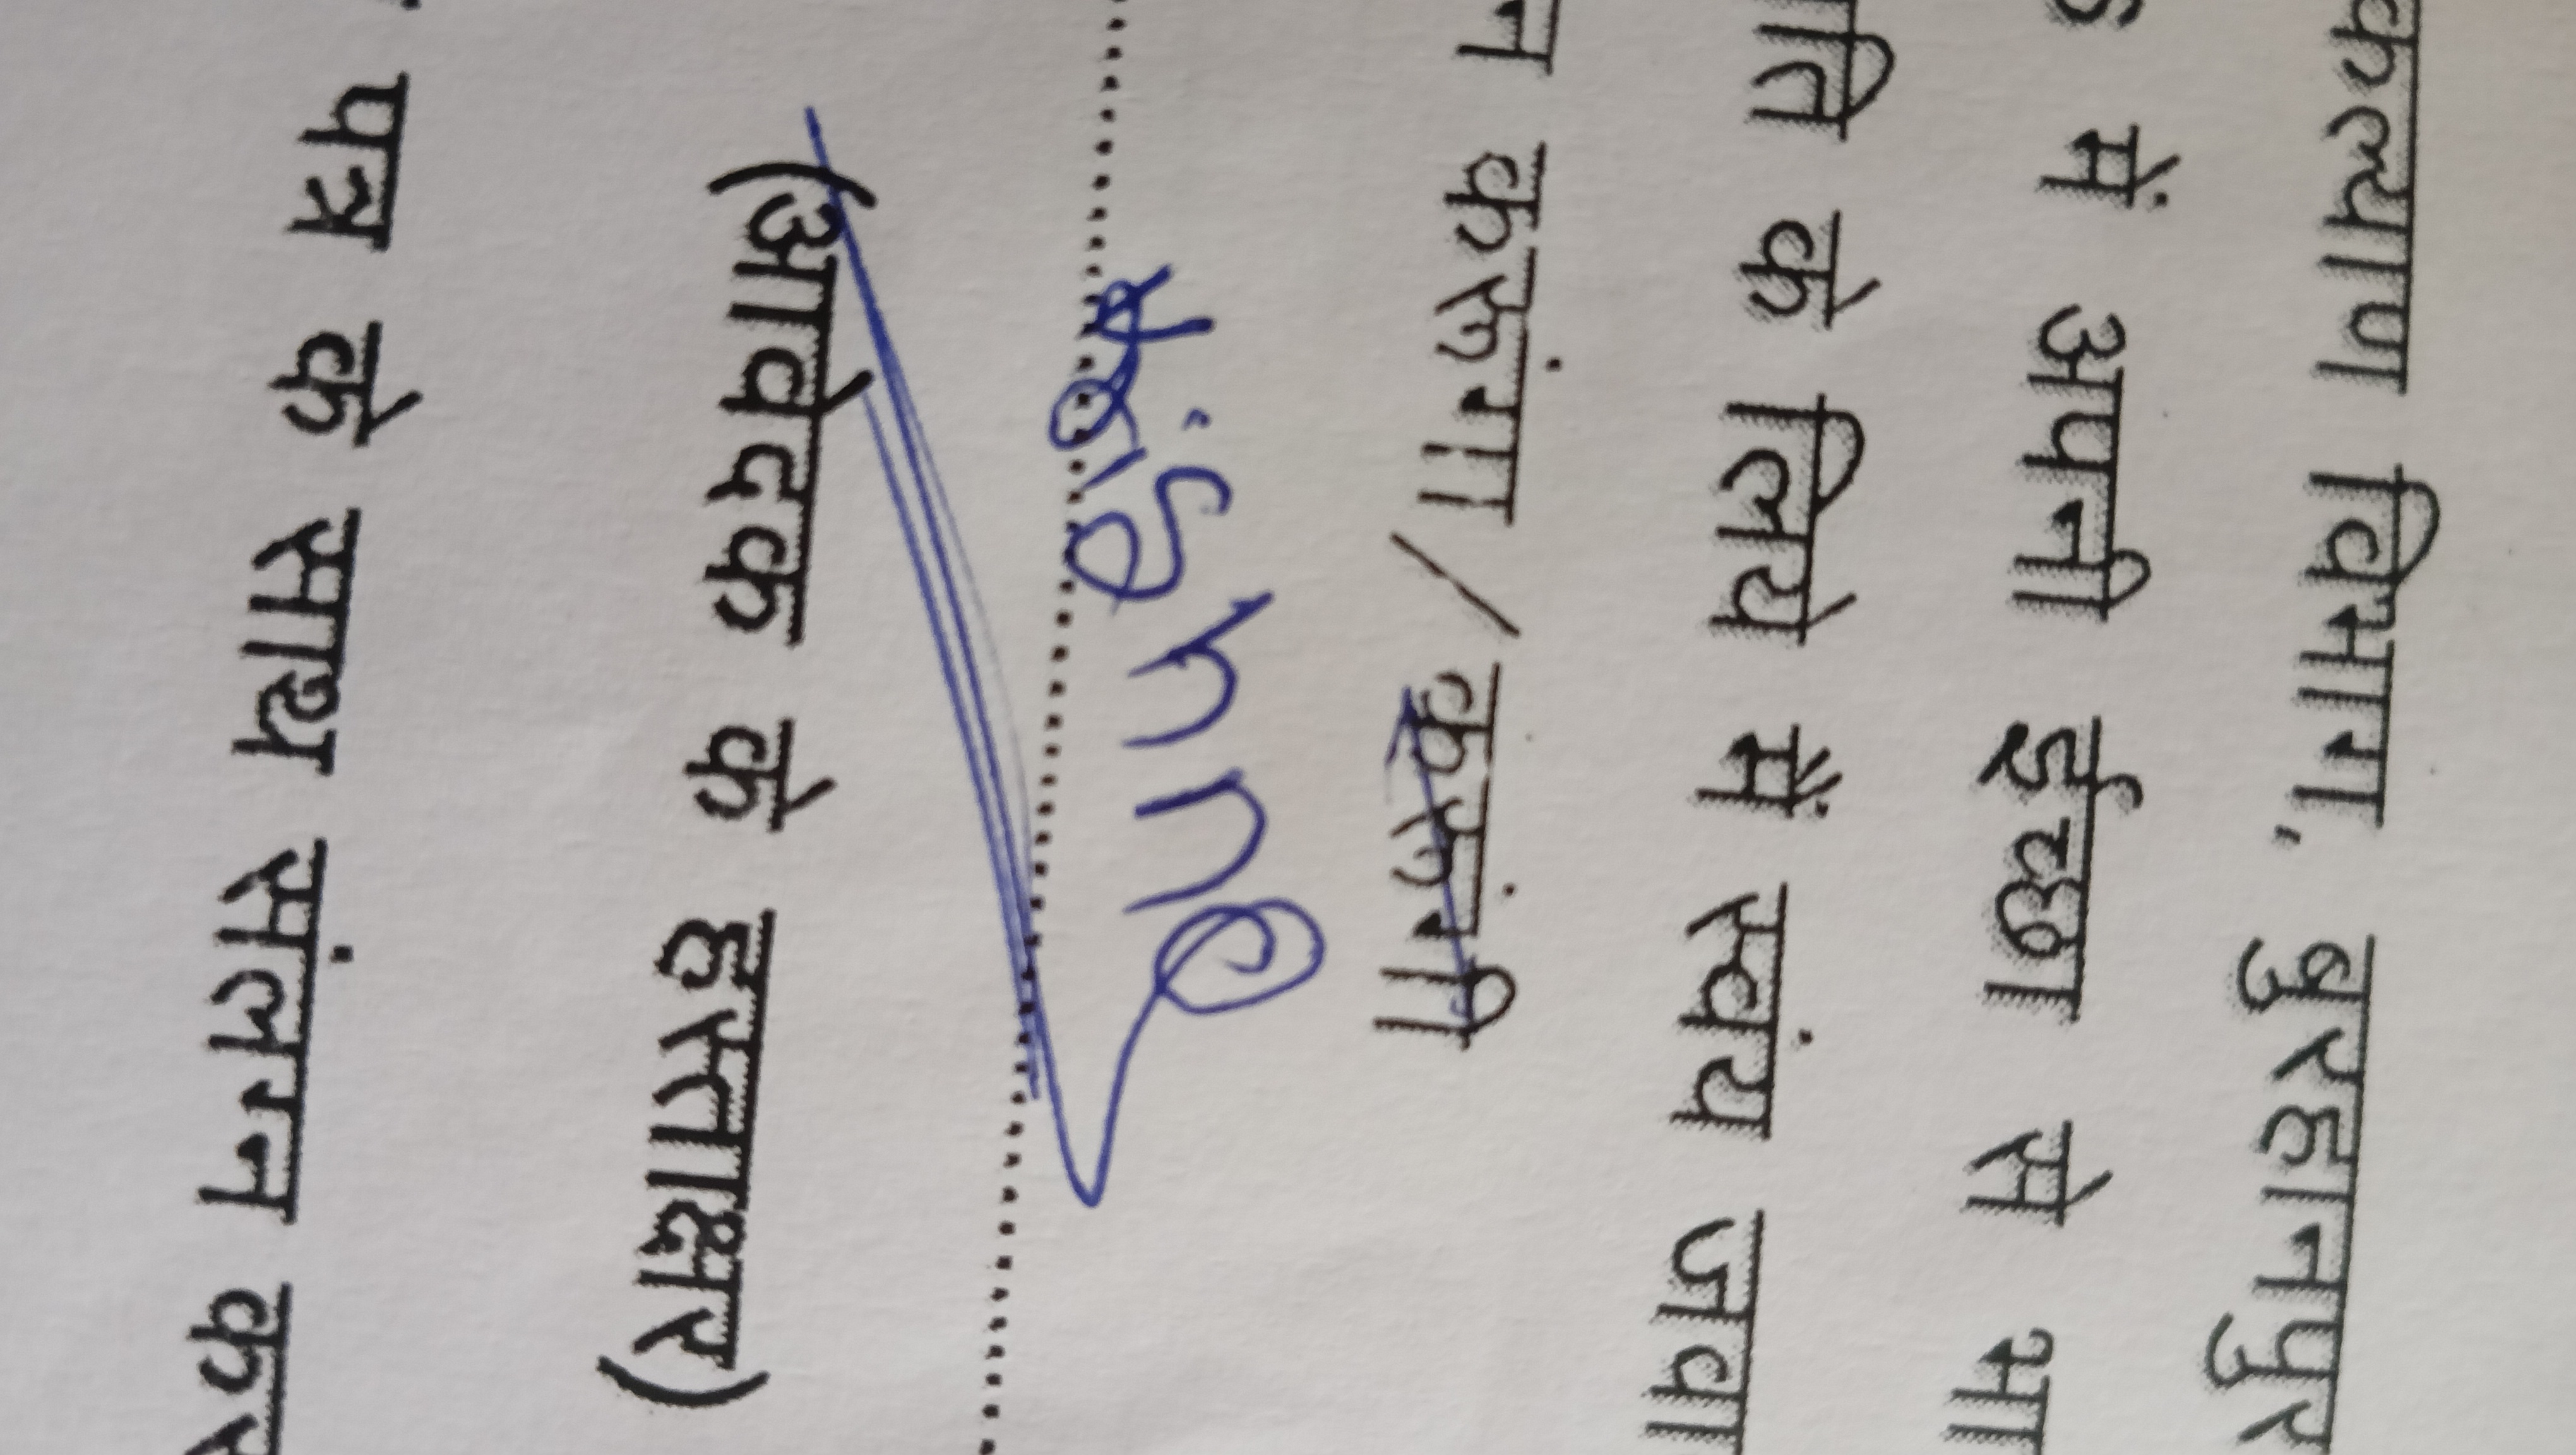 कल्याण विभाग, बुरहानपुर
में अपनी ईच्छा से भा
के लिये मैं स्वंय जवा
न करूंगा / करूंगी
(आवेदक के हस्ताक्षर)
पत्र के साथ संलग्न कर